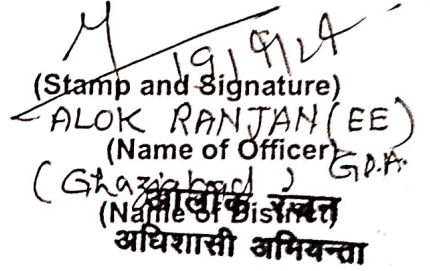 19/9/24
(Stamp and Signature)
ALOK RANJAN (EE)
(Name of Officer) G.D.A.
(Ghaziabad)
आलोक रंजन
(Name of District)
अधिशासी अभियन्ता